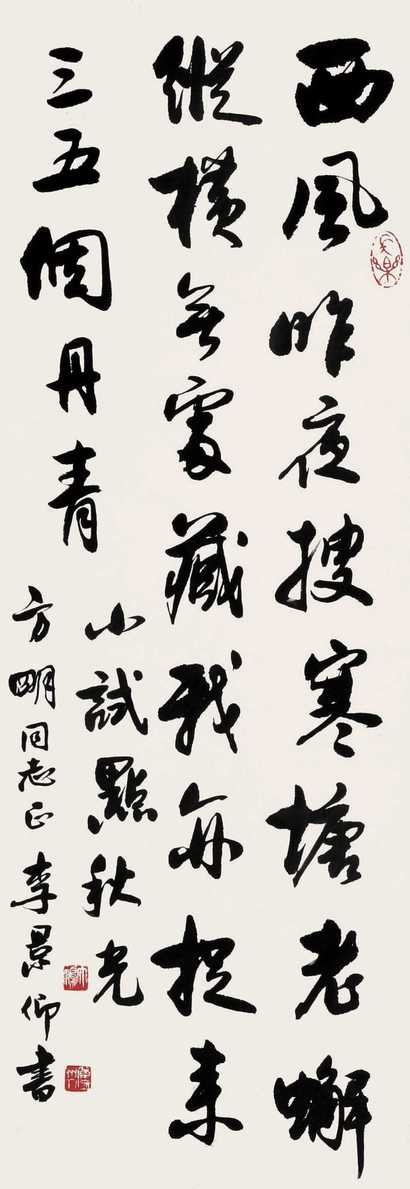 西風昨夜搜寒塘老蠏
縱橫無處藏我亦捉來
三五個丹青
小試點秋光
方明同志正 李景仰書